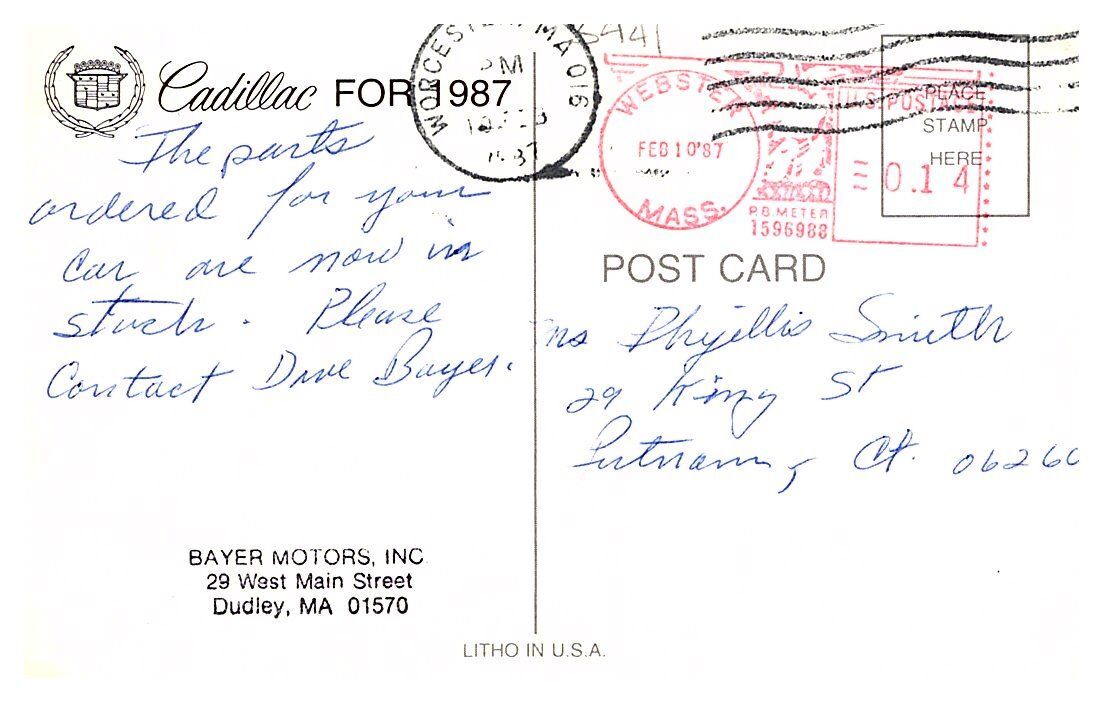 Cadillac FOR 1987
The parts
ordered for your
car are now in
stock. Please
Contact Dave Bayer.
BAYER MOTORS, INC.
29 West Main Street
Dudley, MA 01570
LITHO IN U.S.A.
WORCESTER, MA 016
PM
1987
WEBSTER
FEB 10'87
MASS.
P.B. METER
1596988
U.S. POSTAGE
0.14
PLACE
STAMP
HERE
POST CARD
Ms Phyllis Smith
29 King St
Putnam, Ct. 06260